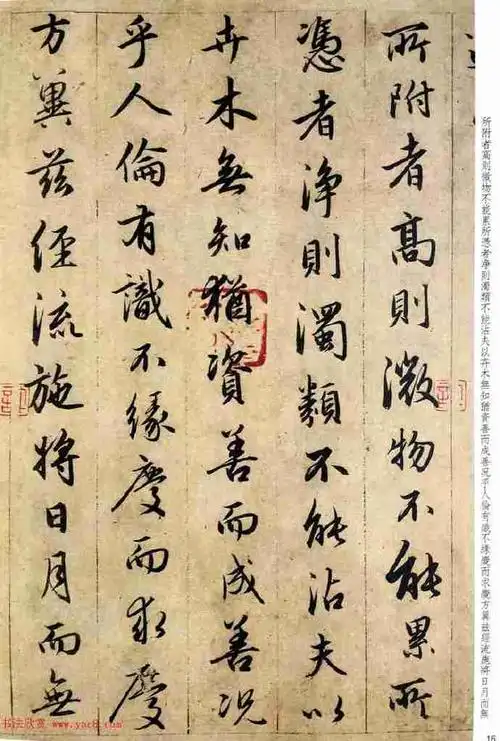 所附者高則微物不能累所
憑者淨則濁類不能沾夫以
卉木無知猶資善而成善況
乎人倫有識不緣慶而求慶
方冀茲經流施將日月而無
所附者高則微物不能累所憑者淨則濁類不能沾夫以卉木無知猶資善而成善況乎人倫有識不緣慶而求慶方冀茲經流施將日月而無
书法欣赏 www.yac8.com
16